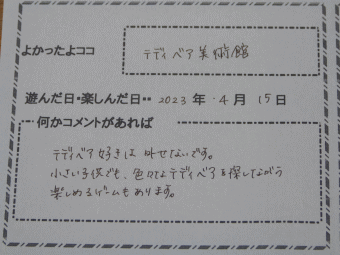 よかったよココ テディベア美術館
遊んだ日・楽しんだ日・・ 2023 年 4 月 15 日
何かコメントがあれば
テディベア好きは 外せないです。
小さい子供でも、色々なテディベアを探しながら
楽しめるゲームもあります。